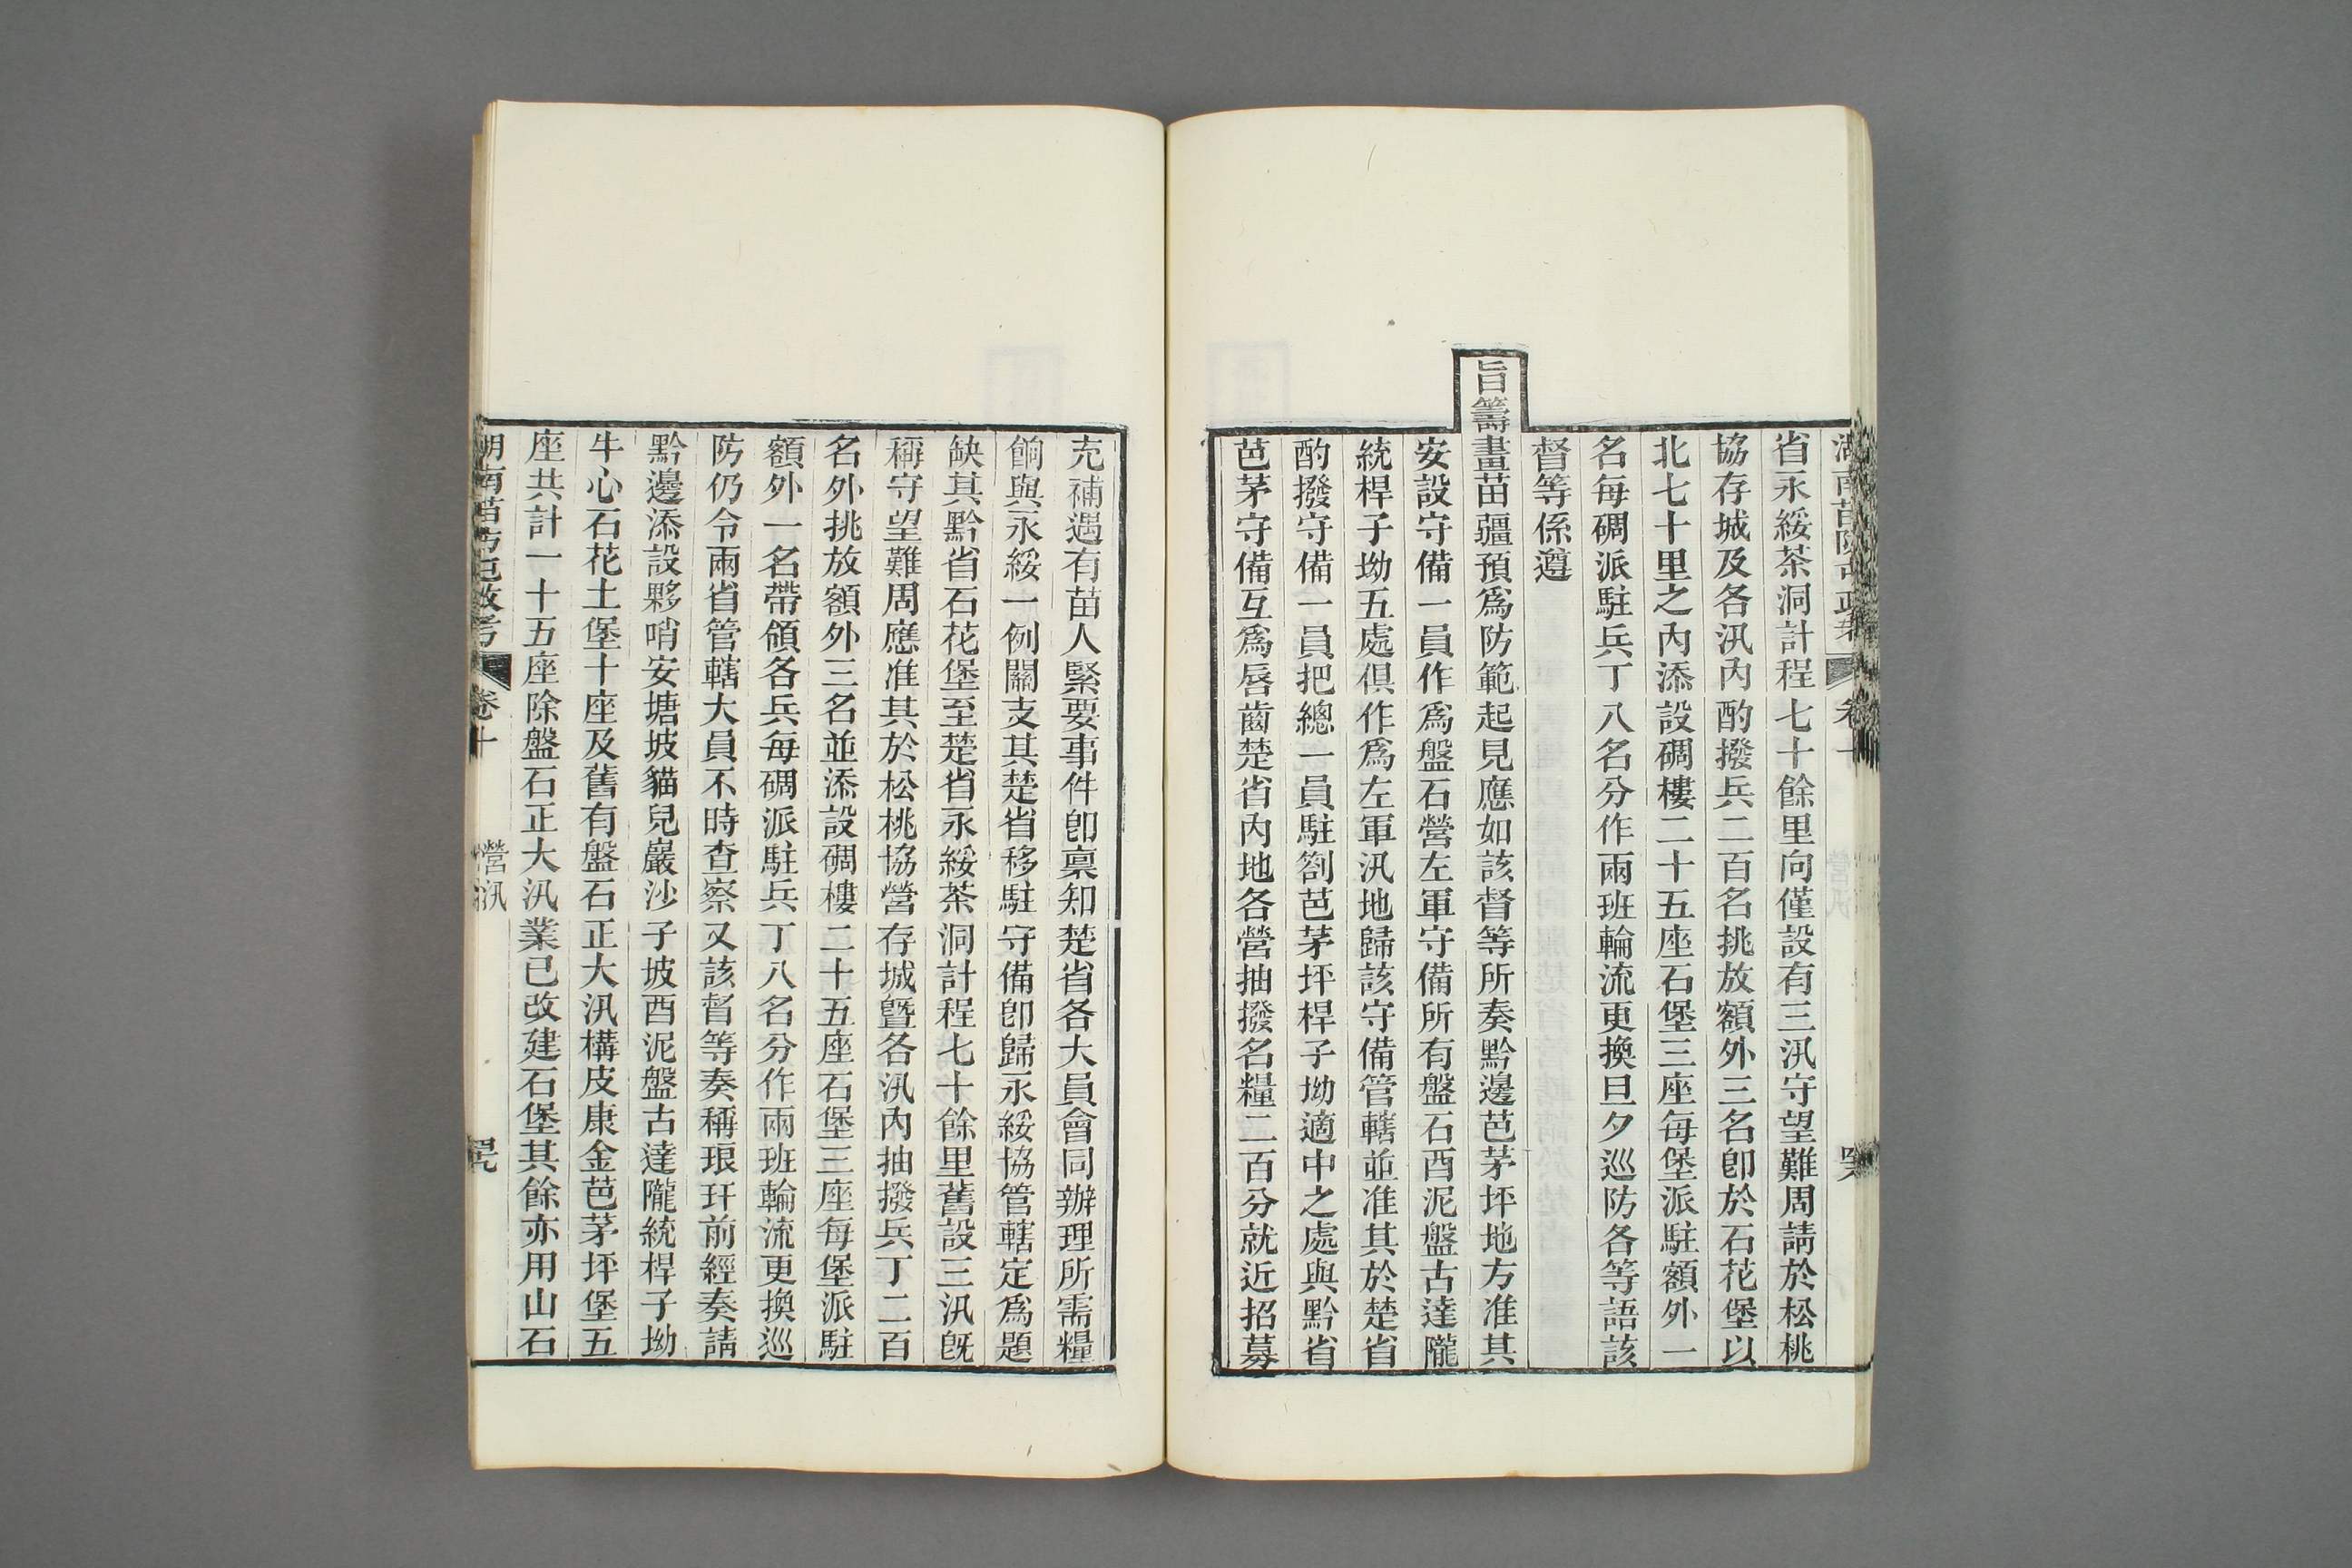 省永綏茶洞計程七十餘里向僅設有三汛守望難周請於松桃
協存城及各汛內酌撥兵二百名挑放額外三名卽於石花堡以
北七十里之內添設碉樓二十五座石堡三座每堡派駐額外一
名每碉派駐兵丁八名分作兩班輪流更換旦夕巡防各等語該
督等係遵
旨籌畫苗疆預爲防範起見應如該督等所奏黔邊芭茅坪地方准其
安設守備一員作爲盤石營左軍守備所有盤石酉泥盤古達隴
統桿子坳五處俱作爲左軍汛地歸該守備管轄並准其於楚省
酌撥守備一員把總一員駐劄芭茅坪桿子坳適中之處與黔省
芭茅守備互爲唇齒楚省內地各營抽撥名糧二百分就近招募
充補遇有苗人緊要事件卽稟知楚省各大員會同辦理所需糧
餉與永綏一例關支其楚省移駐守備卽歸永綏協管轄定爲題
缺其黔省石花堡至楚省永綏茶洞計程七十餘里舊設三汛旣
稱守望難周應准其於松桃協營存城曁各汛內抽撥兵丁二百
名外挑放額外三名並添設碉樓二十五座石堡三座每堡派駐
額外一名帶領各兵每碉派駐兵丁八名分作兩班輪流更換巡
防仍令兩省管轄大員不時查察又該督等奏稱琅玕前經奏請
黔邊添設夥哨安塘坡貓兒巖沙子坡酉泥盤古達隴統桿子坳
牛心石花土堡十座及舊有盤石正大汛構皮康金芭茅坪堡五
座共計一十五座除盤石正大汛業已改建石堡其餘亦用山石
湖南苗防屯政考 卷十 營汛